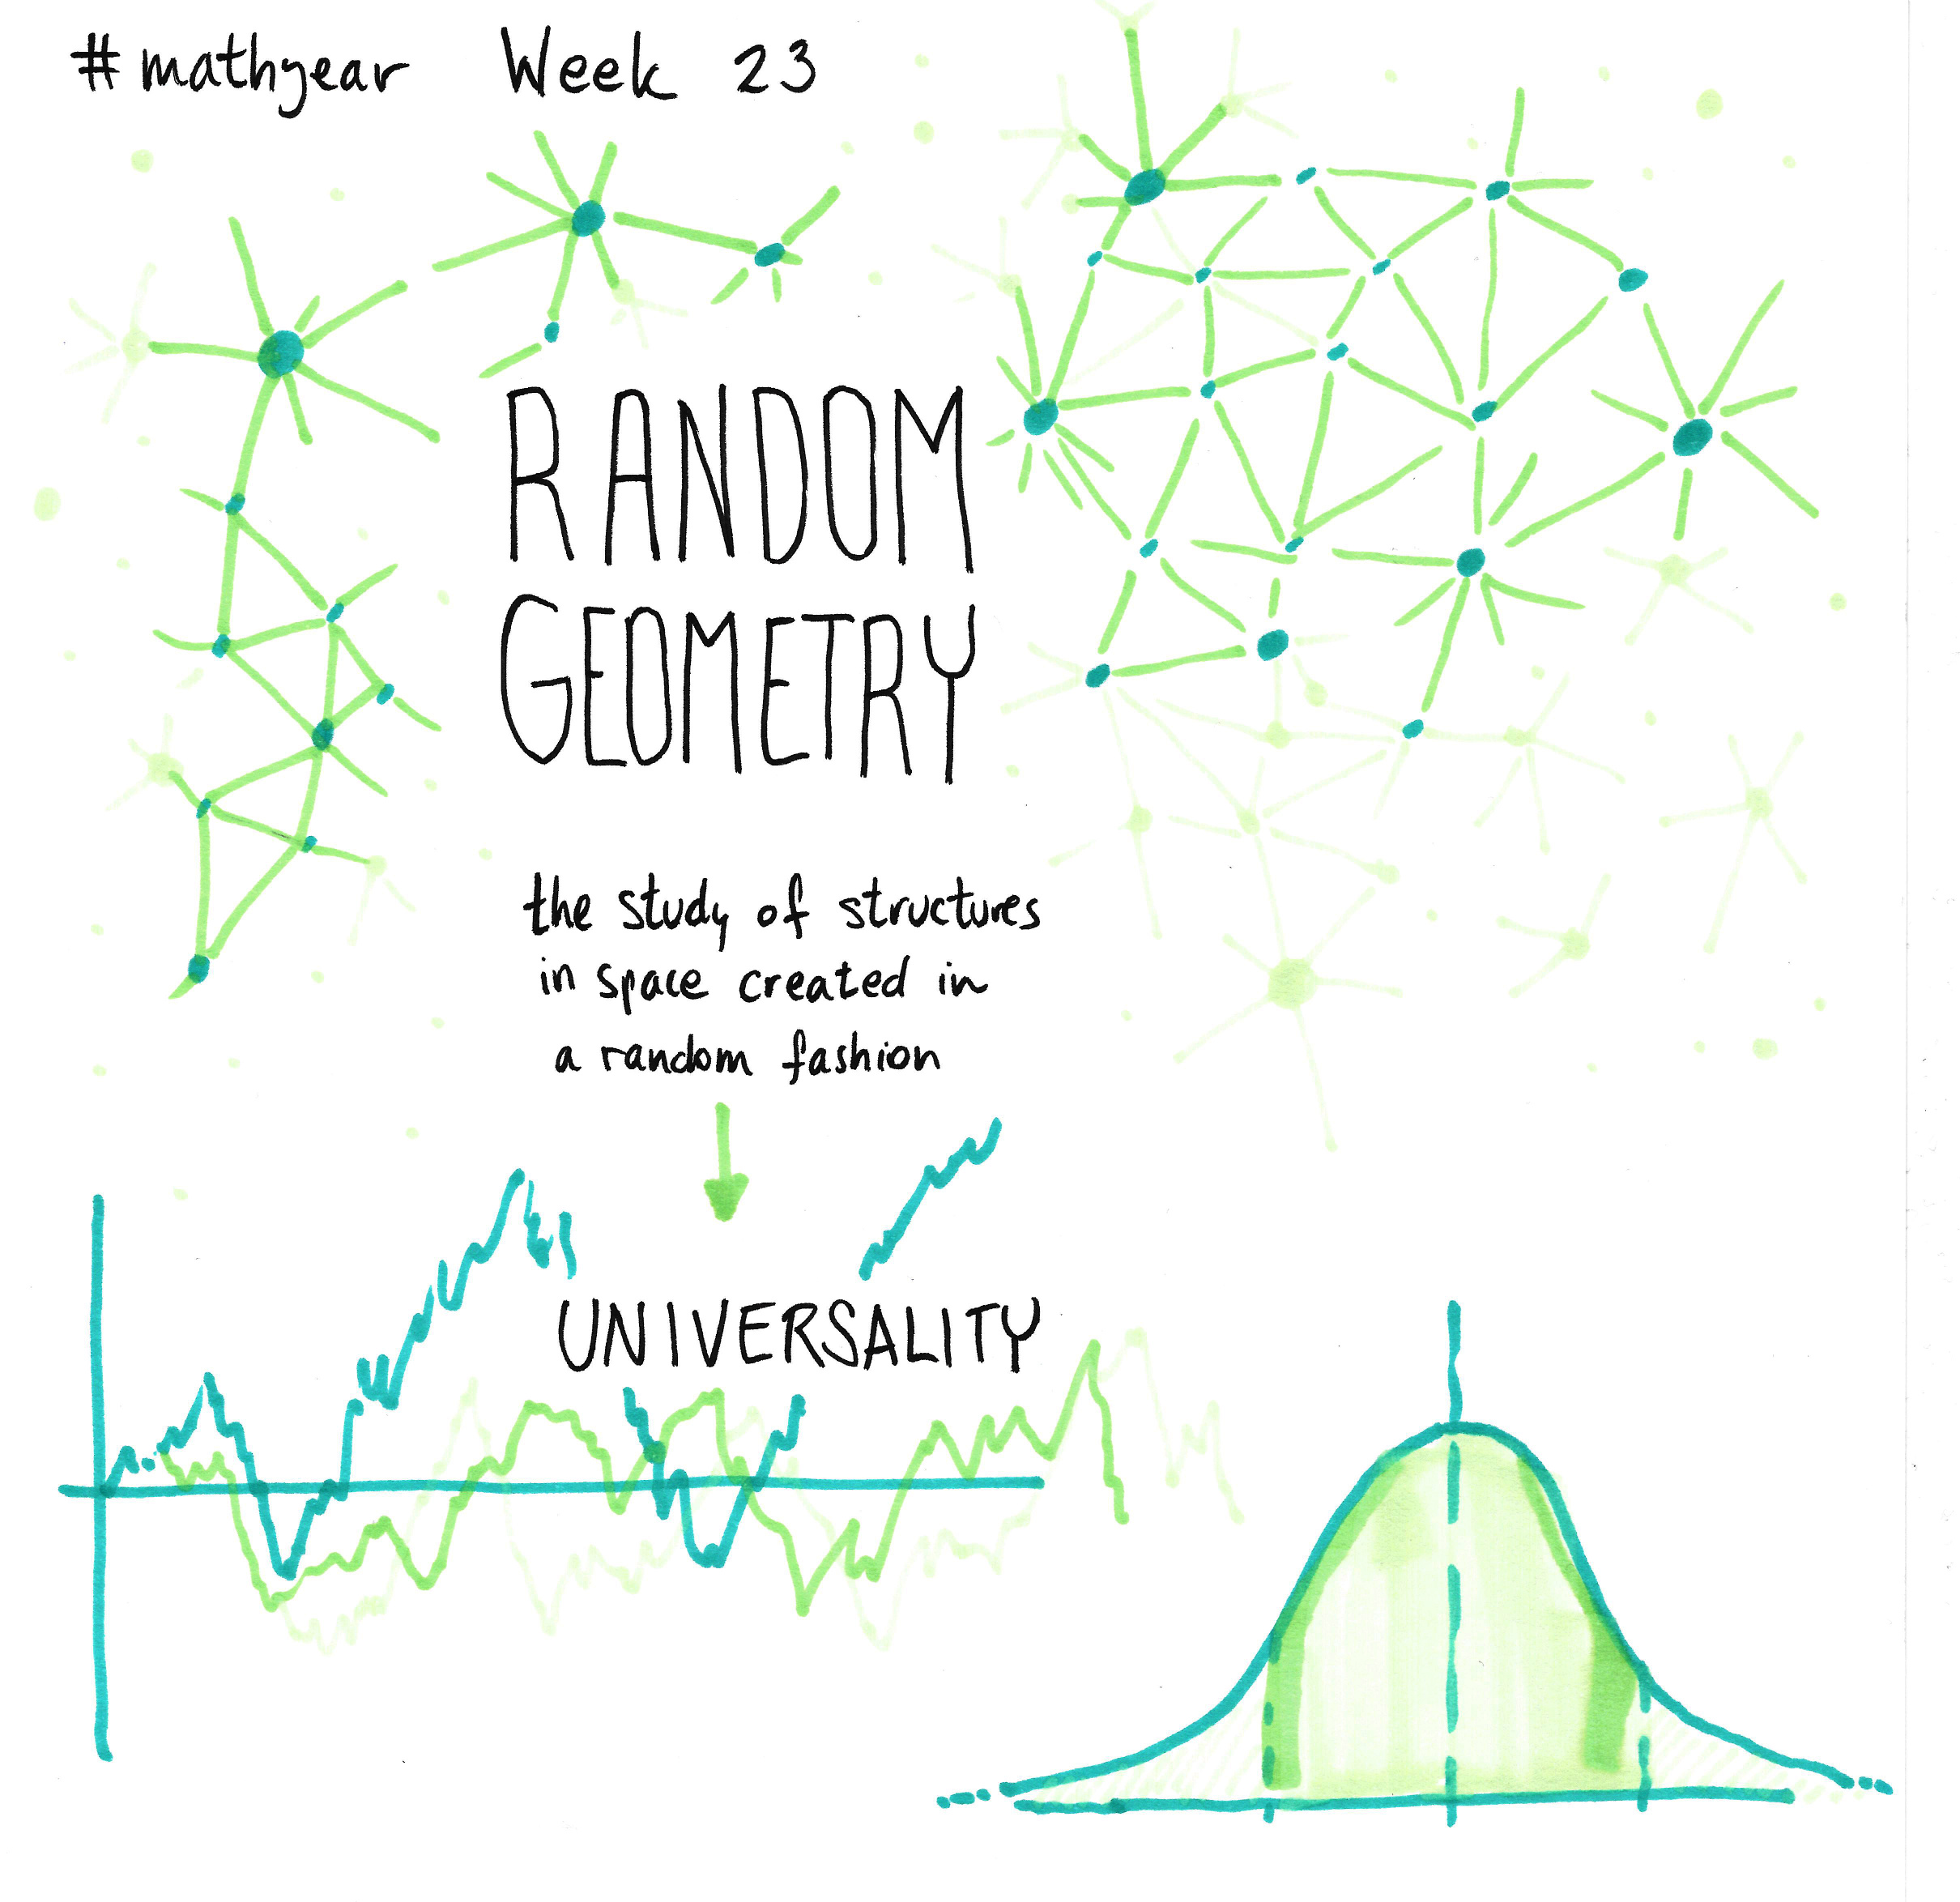 #mathyear Week 23
RANDOM
GEOMETRY
the study of structures
in space created in
a random fashion
UNIVERSALITY